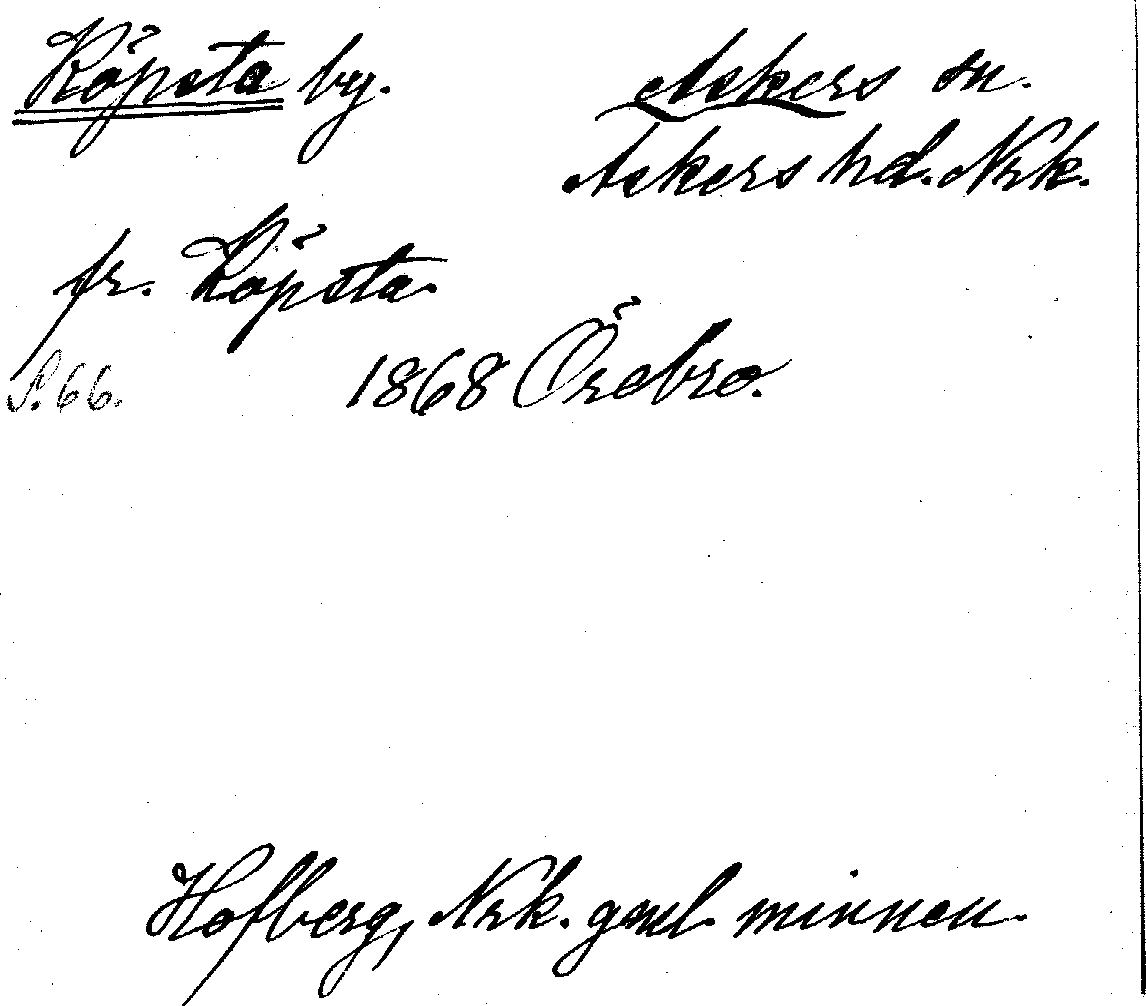 Köpsta by. Askers sn.
Askers hd. Nrk.
fr. Köpsta.
S. 66. 1868 Örebro.
Hofberg, Nrk. gml. minnen.